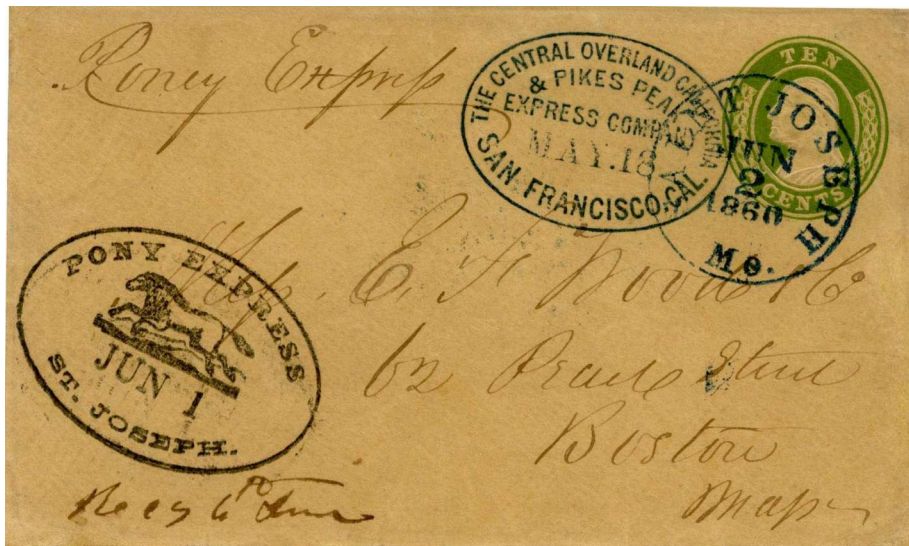 Poney Express
THE CENTRAL OVERLAND CALIFORNIA
& PIKES PEAK
EXPRESS COMPANY
MAY.18
SAN FRANCISCO.CAL.
TEN
CENTS
ST JOSEPH
JUN
2
1860
Mo.
PONY EXPRESS
JUN 1
ST. JOSEPH.
E. F. Wood & Co
62 Pearl Street
Boston
Mass
6th June